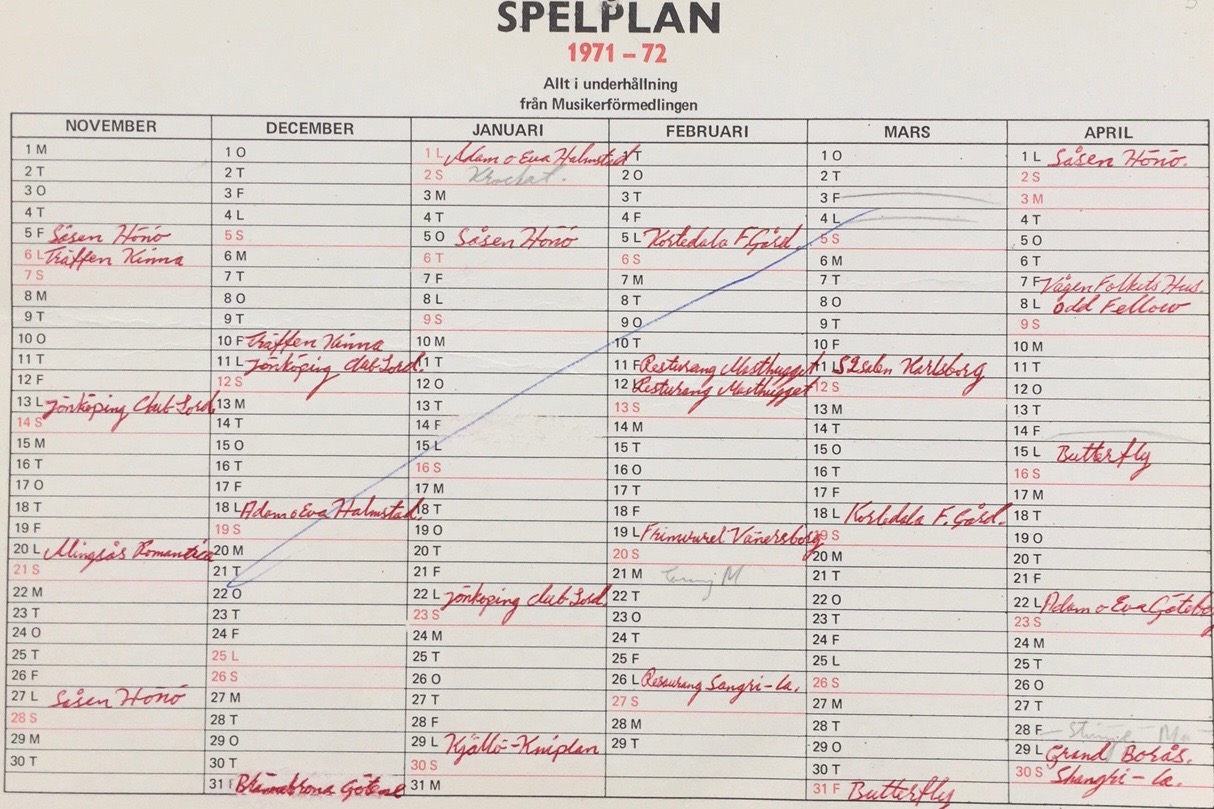 SPELPLAN
1971 – 72
Allt i underhållning
från Musikerförmedlingen
NOVEMBER
1 M
2 T
3 O
4 T
5 F Såsen Hönö
6 L Träffen Kinna
7 S
8 M
9 T
10 O
11 T
12 F
13 L Jönköping Club Lord
14 S
15 M
16 T
17 O
18 T
19 F
20 L Alingsås Romantica
21 S
22 M
23 T
24 O
25 T
26 F
27 L Såsen Hönö
28 S
29 M
30 T
DECEMBER
1 O
2 T
3 F
4 L
5 S
6 M
7 T
8 O
9 T
10 F Träffen Kinna
11 L Jönköping Club Lord.
12 S
13 M
14 T
15 O
16 T
17 F
18 L Adam o Eva Halmstad.
19 S
20 M
21 T
22 O
23 T
24 F
25 L
26 S
27 M
28 T
29 O
30 T
31 F Götene
JANUARI
1 L Adam o Eva Halmstad
2 S Krockat.
3 M
4 T
5 O Såsen Hönö
6 T
7 F
8 L
9 S
10 M
11 T
12 O
13 T
14 F
15 L
16 S
17 M
18 T
19 O
20 T
21 F
22 L Jönköping Club Lord.
23 S
24 M
25 T
26 O
27 T
28 F
29 L Kjällö-Kniplan
30 S
31 M
FEBRUARI
1 T
2 O
3 T
4 F
5 L Kortedala F. Gård.
6 S
7 M
8 T
9 O
10 T
11 F Resturang Masthugget
12 L Resturang Masthugget
13 S
14 M
15 T
16 O
17 T
18 F
19 L Frimurel Vänersborg
20 S
21 M
22 T
23 O
24 T
25 F
26 L Resaurang Sangri-la.
27 S
28 M
29 T
MARS
1 O
2 T
3 F
4 L
5 S
6 M
7 T
8 O
9 T
10 F
11 L S2salen Karlsborg
12 S
13 M
14 T
15 O
16 T
17 F
18 L Kortedala F. Gård.
19 S
20 M
21 T
22 O
23 T
24 F
25 L
26 S
27 M
28 T
29 O
30 T
31 F Butterfly
APRIL
1 L Såsen Hönö.
2 S
3 M
4 T
5 O
6 T
7 F Vågen Folkets Hus.
8 L Odd Fellow
9 S
10 M
11 T
12 O
13 T
14 F
15 L Butterfly
16 S
17 M
18 T
19 O
20 T
21 F
22 L Adam o Eva Götebo
23 S
24 M
25 T
26 O
27 T
28 F
29 L Grand Borås.
30 S Shangri-la.